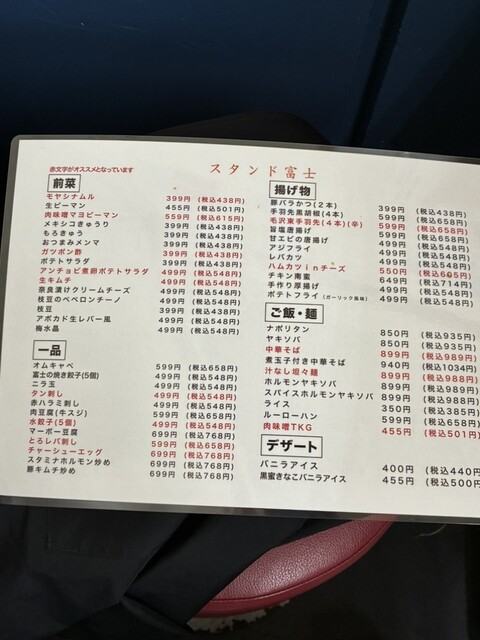 赤文字がオススメとなっています
スタンド富士
前菜
モヤシナムル 399円 (税込438円)
生ピーマン 455円 (税込501円)
肉味噌マヨピーマン 559円 (税込615円)
メキシコきゅうり 399円 (税込438円)
もろきゅう 399円 (税込438円)
おつまみメンマ 399円 (税込438円)
ガツポン酢 399円 (税込438円)
ポテトサラダ 399円 (税込438円)
アンチョビ煮卵ポテトサラダ 499円 (税込548円)
生キムチ 499円 (税込548円)
奈良漬けクリームチーズ 499円 (税込548円)
枝豆のペペロンチーノ 499円 (税込548円)
枝豆 399円 (税込438円)
アボカド生レバー風 499円 (税込548円)
梅水晶 499円 (税込548円)
一品
オムキャベ 599円 (税込658円)
富士の焼き餃子(5個) 499円 (税込548円)
ニラ玉 499円 (税込548円)
タン刺し 499円 (税込548円)
赤ハラミ刺し 499円 (税込548円)
肉豆腐(牛スジ) 599円 (税込658円)
水餃子(5個) 499円 (税込548円)
マーボー豆腐 699円 (税込768円)
とろレバ刺し 599円
チャーシューエッグ 699円 (税込768円)
スタミナホルモン炒め 699円 (税込768円)
豚キムチ炒め 699円 (税込768円)
揚げ物
豚バラかつ(2本) 399円 (税込438円)
手羽先黒胡椒(4本) 599円 (税込658円)
毛沢東手羽先(4本)(辛) 599円 (税込658円)
旨塩唐揚げ 599円 (税込658円)
甘エビの唐揚げ 499円 (税込548円)
アジフライ 499円 (税込548円)
レバカツ 499円 (税込548円)
ハムカツinチーズ 550円 (税込605円)
チキン南蛮 649円 (税込714円)
手作り厚揚げ 499円 (税込548円)
ポテトフライ(ガーリック風味) 499円 (税込548円)
ご飯・麺
ナポリタン 850円 (税込935円)
ヤキソバ 850円 (税込935円)
中華そば 899円 (税込989円)
煮玉子付き中華そば 940円 (税込1034円)
汁なし坦々麺 899円 (税込988円)
ホルモンヤキソバ 899円 (税込988円)
スパイスホルモンヤキソバ 899円 (税込988円)
ライス 350円 (税込385円)
ルーローハン 599円 (税込658円)
肉味噌TKG 455円 (税込501円)
デザート
バニラアイス 400円 (税込440円
黒蜜きなこバニラアイス 455円 (税込500円